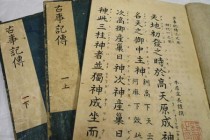 天地初發之時於高天原成
神名天之御中主神
次高御產巢日神次神產巢日
神此三柱神者並獨神成坐而
古事記傳
一上
古事記傳
一下